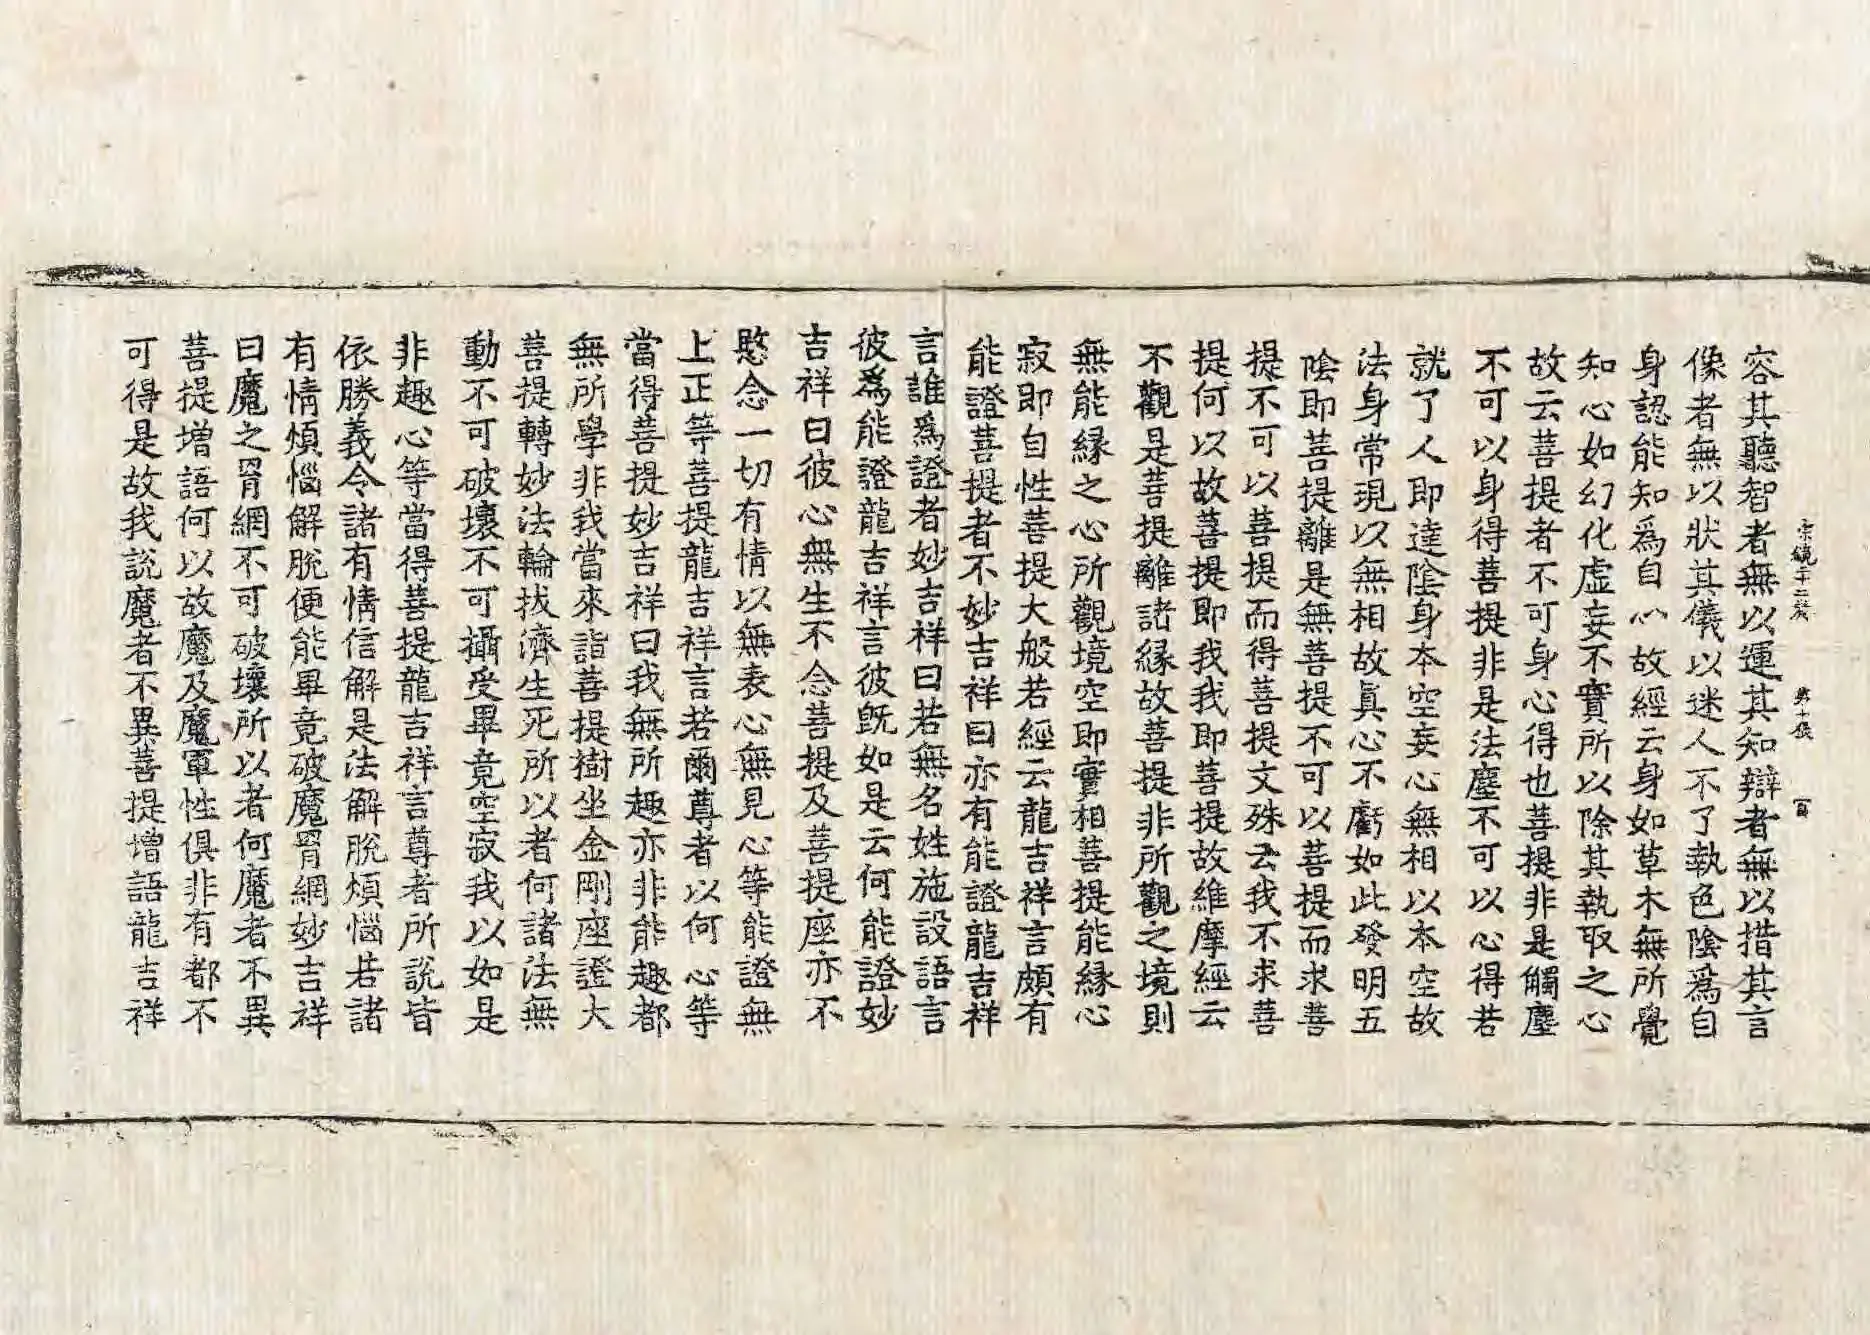 宗鏡二十二卷 第十張 百
容其聽智者無以運其知辯者無以措其言
像者無以狀其儀以迷人不了執色陰爲自
身認能知爲自心故經云身如草木無所覺
知心如幻化虛妄不實所以除其執取之心
故云菩提者不可身心得也菩提非是觸塵
不可以身得菩提非是法塵不可以心得若
說了人即達陰身本空妄心無相以本空故
法身常現以無相故眞心不虧如此發明五
陰即菩提離是無菩提不可以菩提而求菩
提不可以菩提而得菩提文殊云我不求菩
提何以故菩提即我我即菩提故維摩經云
不觀是菩提離諸緣故菩提非所觀之境則
無能緣之心所觀境空即實相菩提能緣心
寂即自性菩提大般若經云龍吉祥言頗有
能證菩提者不妙吉祥曰亦有能證龍吉祥
言誰爲證者妙吉祥曰若無名姓施設語言
彼爲能證龍吉祥言彼旣如是云何能證妙
吉祥曰彼心無生不念菩提及菩提座亦不
愍念一切有情以無表心無見心等能證無
上正等菩提龍吉祥言若爾尊者以何心等
當得菩提妙吉祥曰我無所趣亦非能趣都
無所學非我當來詣菩提樹坐金剛座證大
菩提轉妙法輪拔濟生死所以者何諸法無
動不可破壞不可攝受畢竟空寂我以如是
非趣心等當得菩提龍吉祥言尊者所說皆
依勝義令諸有情信解是法解脫煩惱若諸
有情煩惱解脫便能畢竟破魔罥網妙吉祥
曰魔之罥網不可破壞所以者何魔者不異
菩提增語何以故魔及魔軍性俱非有都不
可得是故我說魔者不異菩提增語龍吉祥